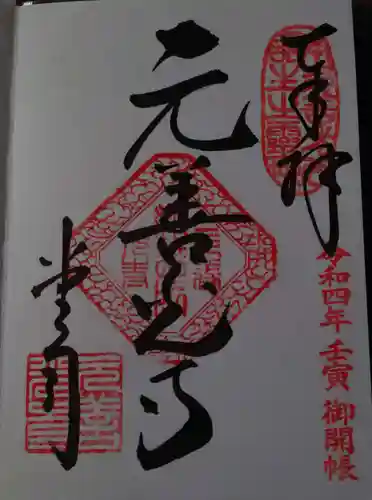 奉拝
令和四年 壬寅 御開帳
元善光寺
堂司